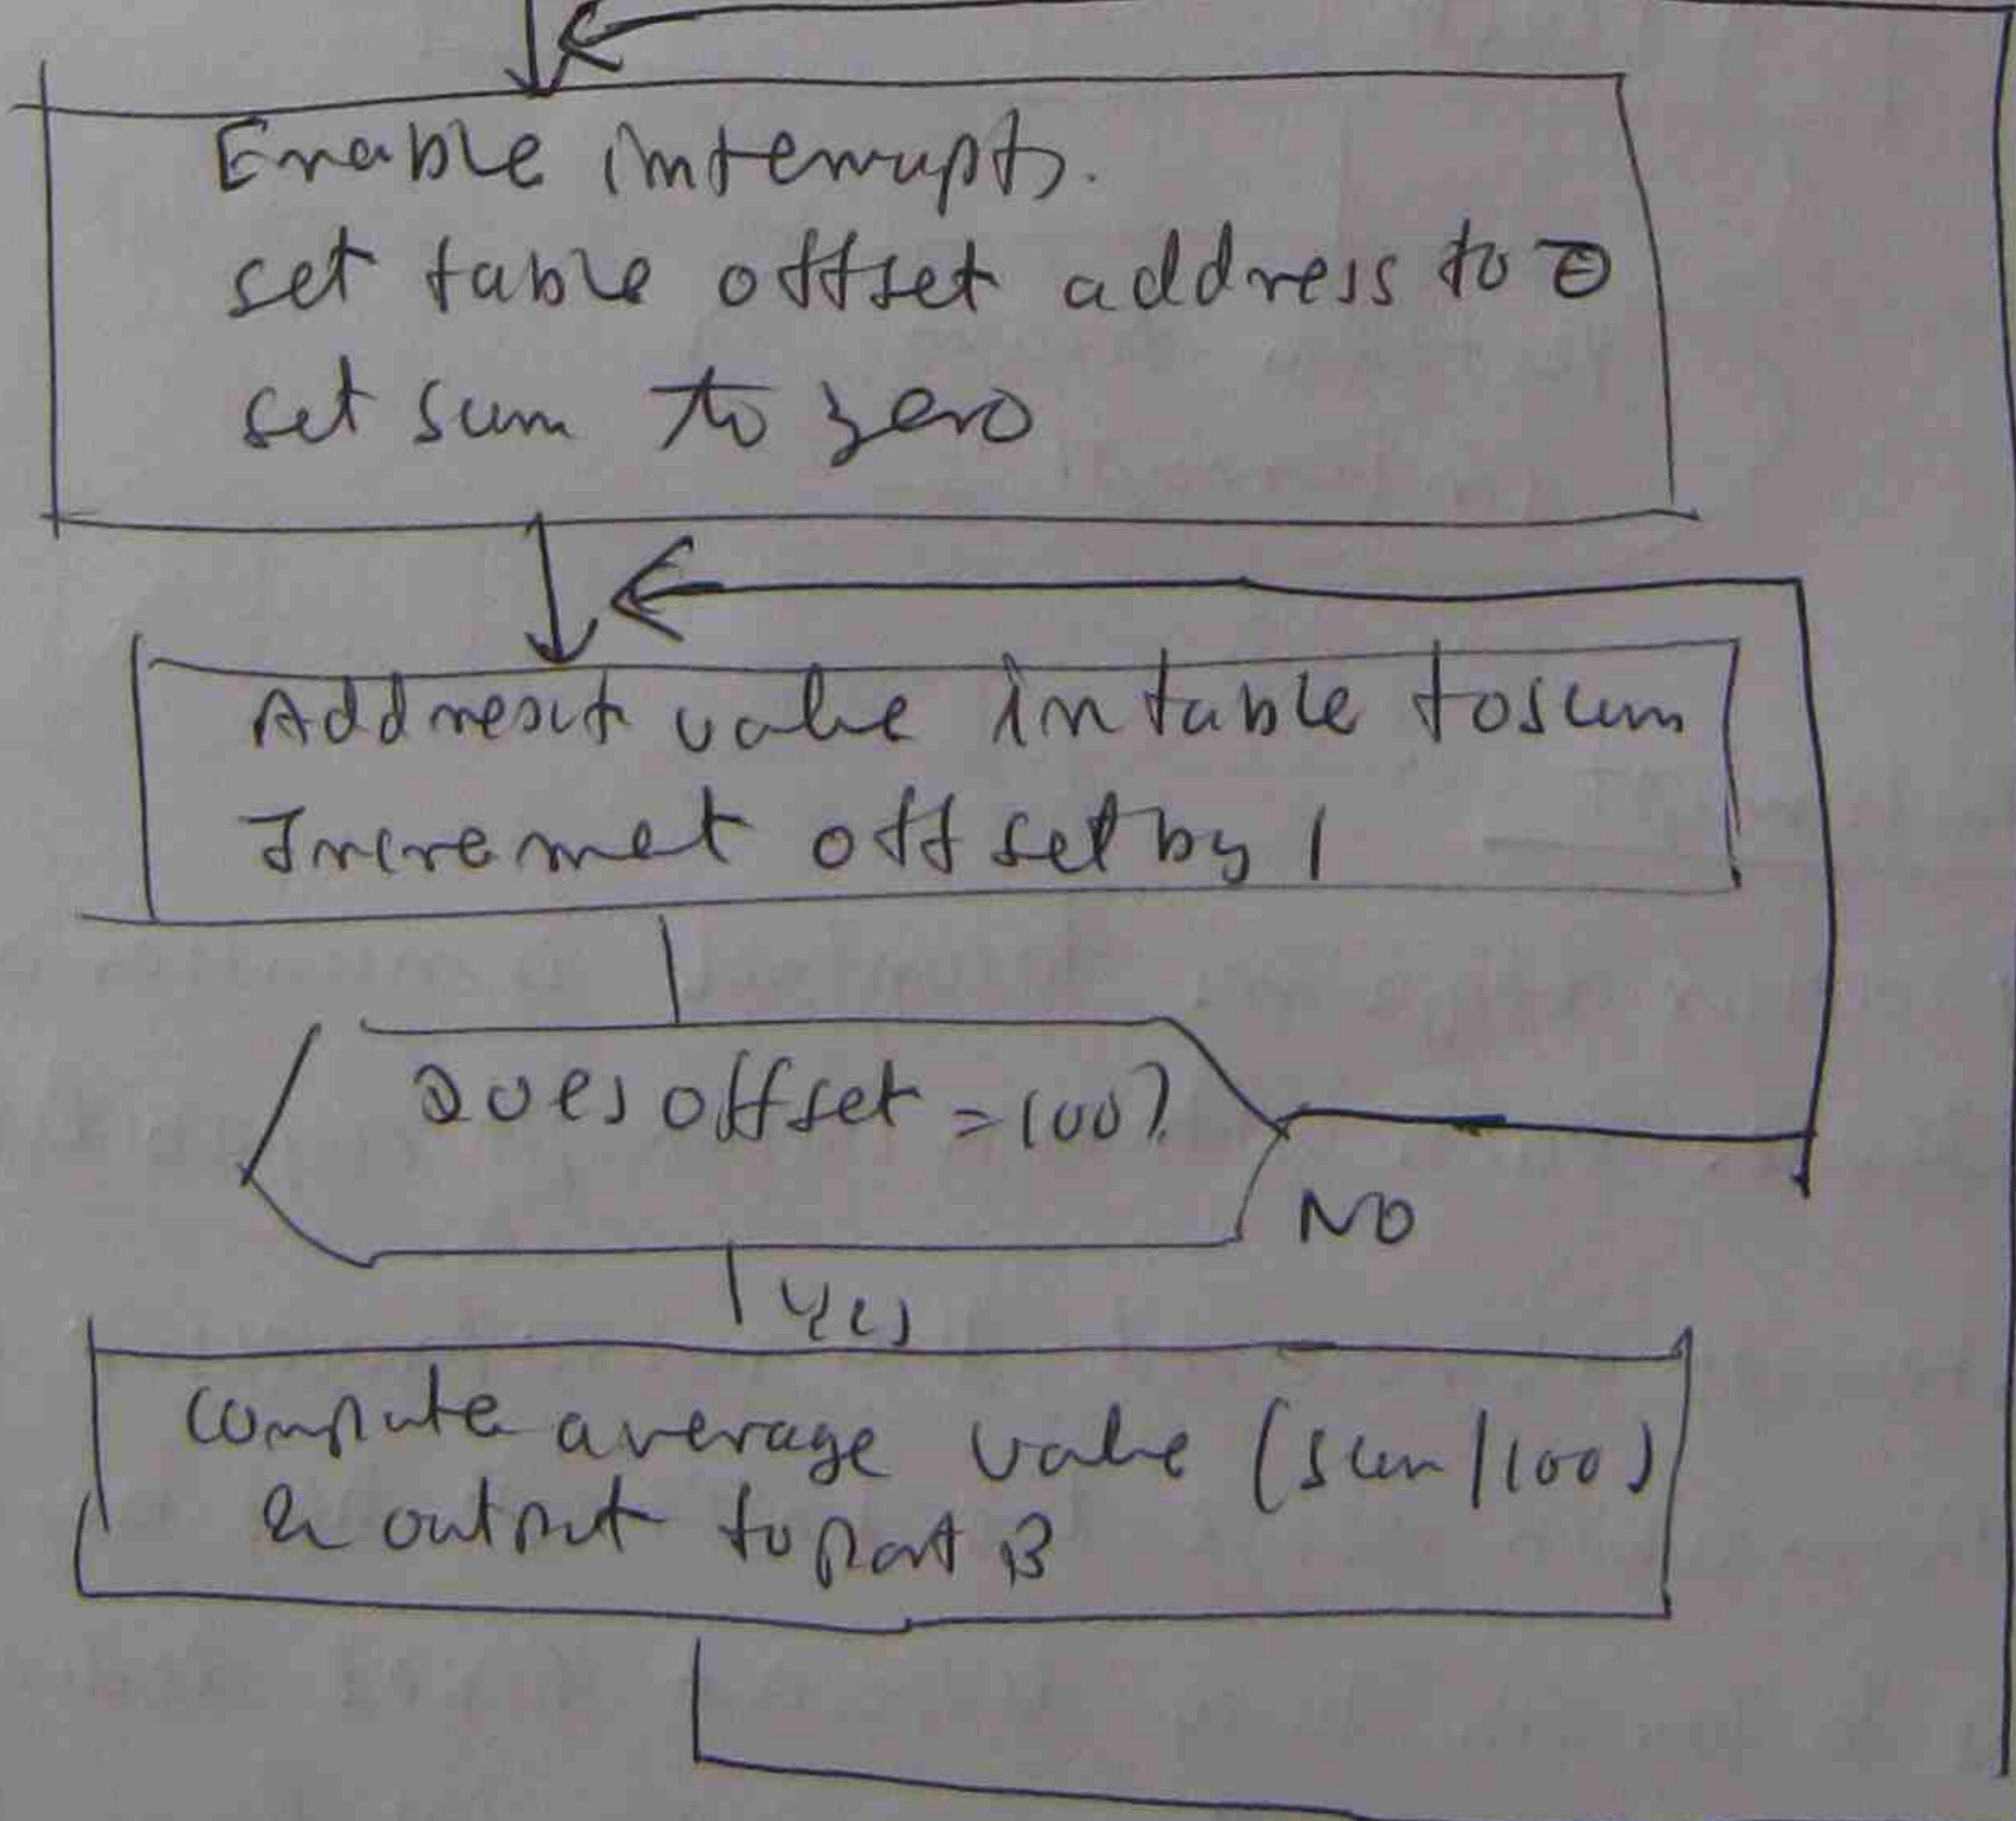 Enable interrupts.
set table offset address to 0
set sum to zero
Add result value in table to sum
Incremet offset by 1
Does offset = 100?
NO
Yes
compute average value (sum/100)
& output to port B